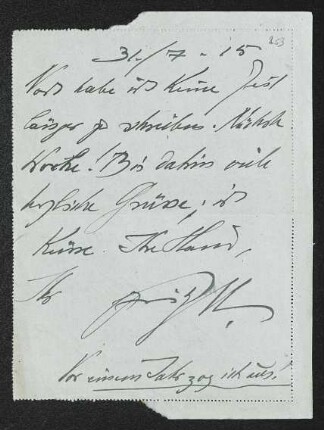 31./7. 15
253
Noch habe ich keine Zeit
länger zu schreiben. Nächste
Woche! Bis dahin viele
herzliche Grüsse, ich
küsse Ihre Hand,
Ihr
Vor einem Jahr zog ich aus!